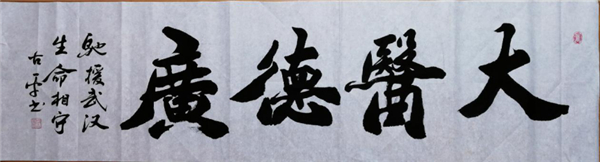 大醫德廣
馳援武汉
生命相守
古平书